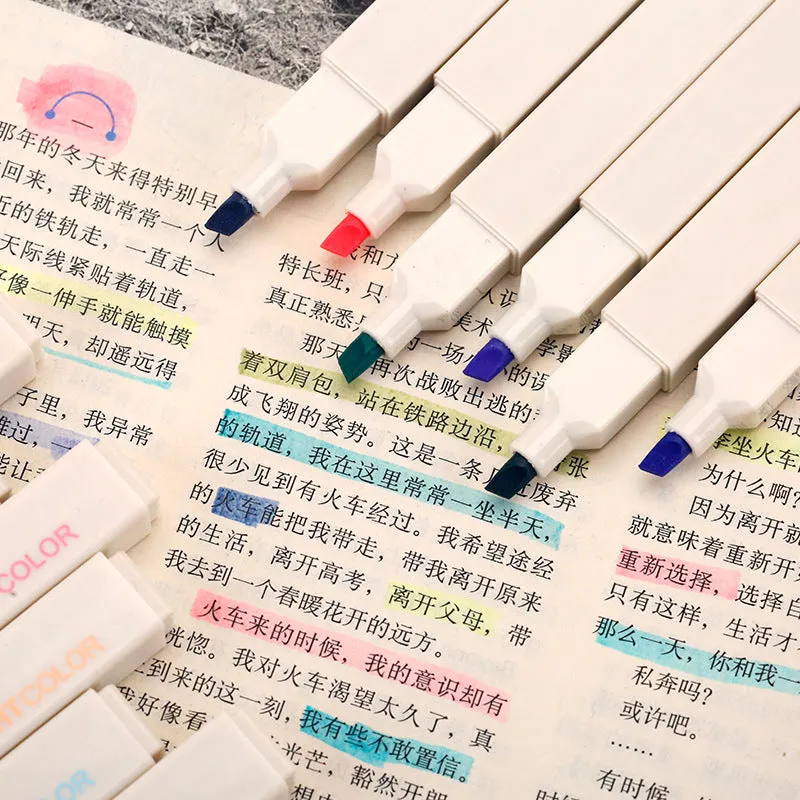 那年的冬天来得特别早
回来，我就常常一个人
近的铁轨走，一直走
天际线紧贴着轨道，
好像一伸手就能触摸
明天，却遥远得
子里，我异常
难过，
能让
特长班，只
真正熟悉
美术
学
那天 再次战败出逃的
的一场
着双肩包，站在铁路边沿，
成飞翔的姿势。这是一条 废弃
的轨道，我在这里常常一坐半天，
很少见到有火车经过。我希望途经
的火车能把我带走，带我离开原来
的生活，离开高考，离开父母，带
我去到一个春暖花开的远方。
火车来的时候，我的意识却有
光惚。我对火车渴望太久了，真
到来的这一刻，我有些不敢置信。
我好像看
光芒，豁然开朗
坐火车
为什么啊？
因为离开就
就意味着重新开
重新选择，选择自
只有这样，生活才
那么一天，你和我一
私奔吗？
或许吧。
……
有时候
时候
COLOR
ATCOLOR
COLOR